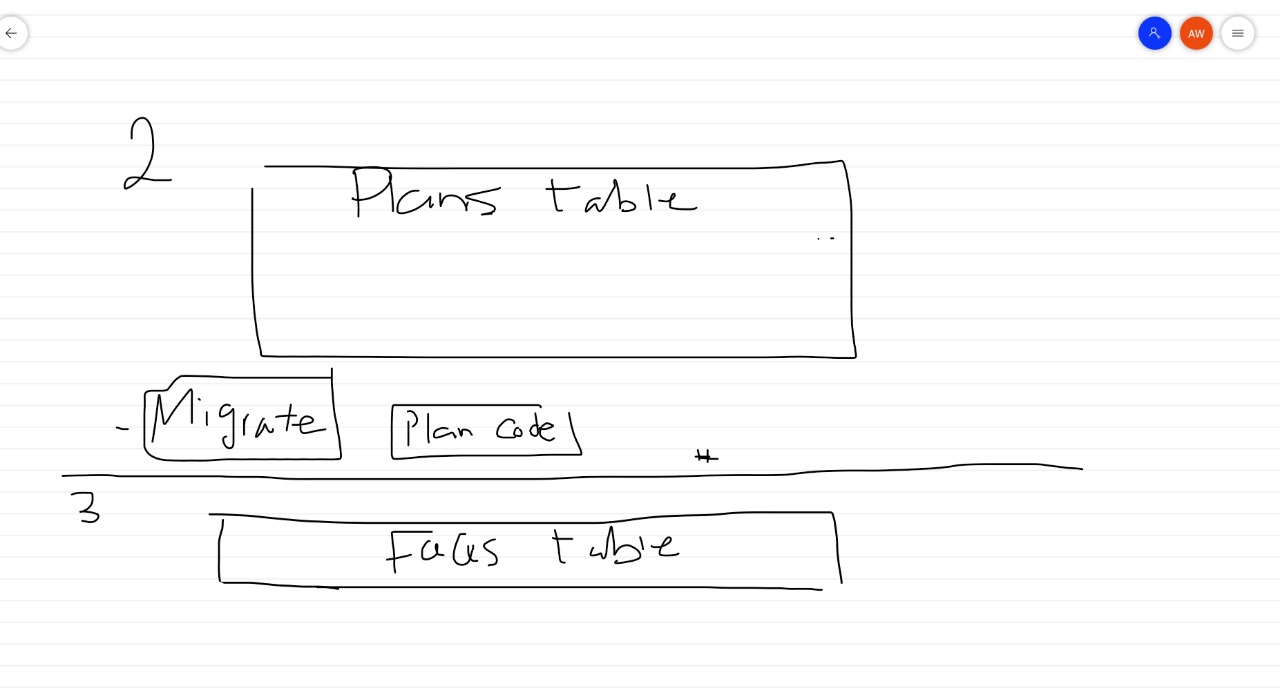 AW
2
Plans table
- Migrate Plan code
3
table